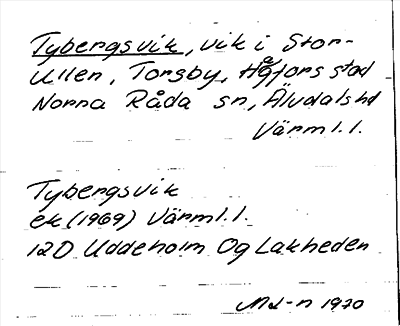 Tybergsvik, vik i Stor-
Ullen, Torsby, Hagfors stad
Norra Råda sn, Älvdals hd
Värml. l.
Tybergsvik
ek (1969) Värml. l.
12D Uddeholm 0g Lakheden
1970